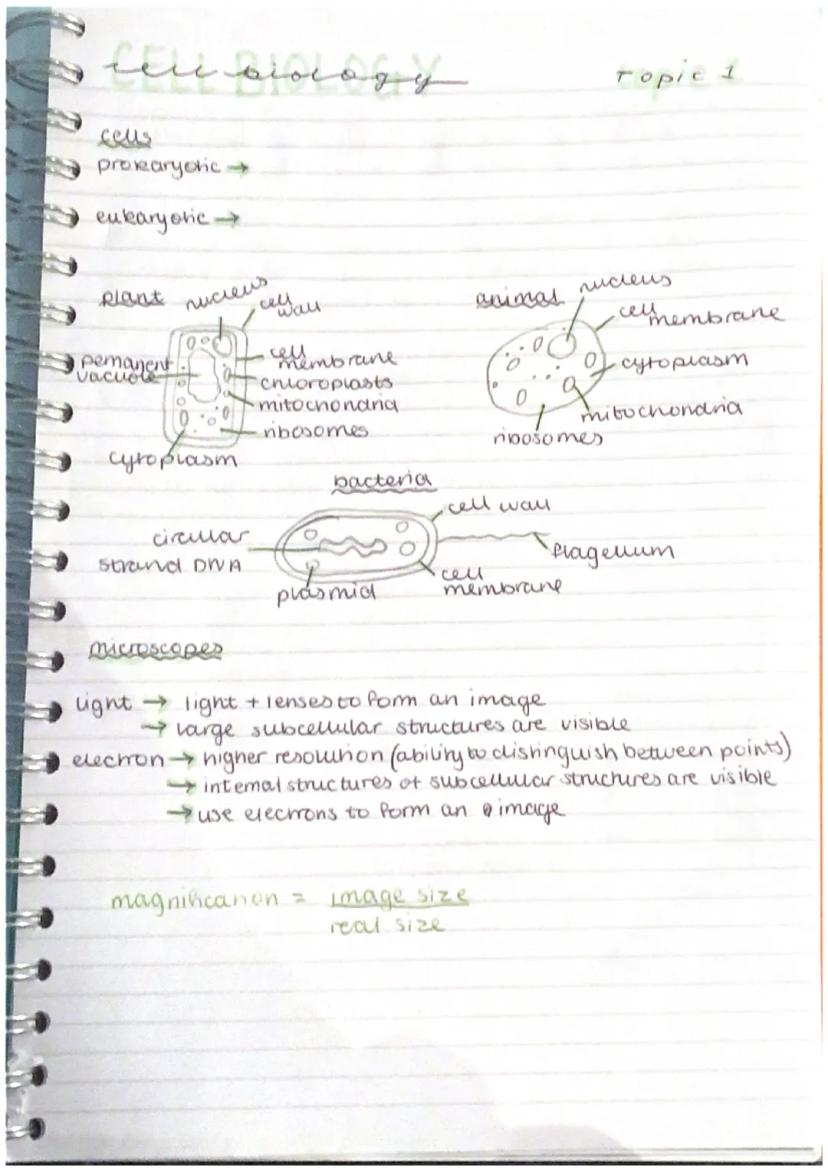 CELL BIOLOGY
cell biology Topic 1
cells
prokaryotic →
eukaryotic →
plant
nucleus
cell
wall
pemanent
vacuole
cell
membrane
chloroplasts
mitochondria
ribosomes
cytoplasm
animal
nucleus
cell
membrane
cytoplasm
mitochondria
ribosomes
bacteria
cell wall
circular
strand DNA
flagellum
plasmid
cell
membrane
microscopes
light → light + lenses to form an image
→ large subcellular structures are visible
electron → higher resolution (ability to distinguish between points)
→ internal structures of subcellular structures are visible
→ use electrons to form an image
magnification = image size
real size